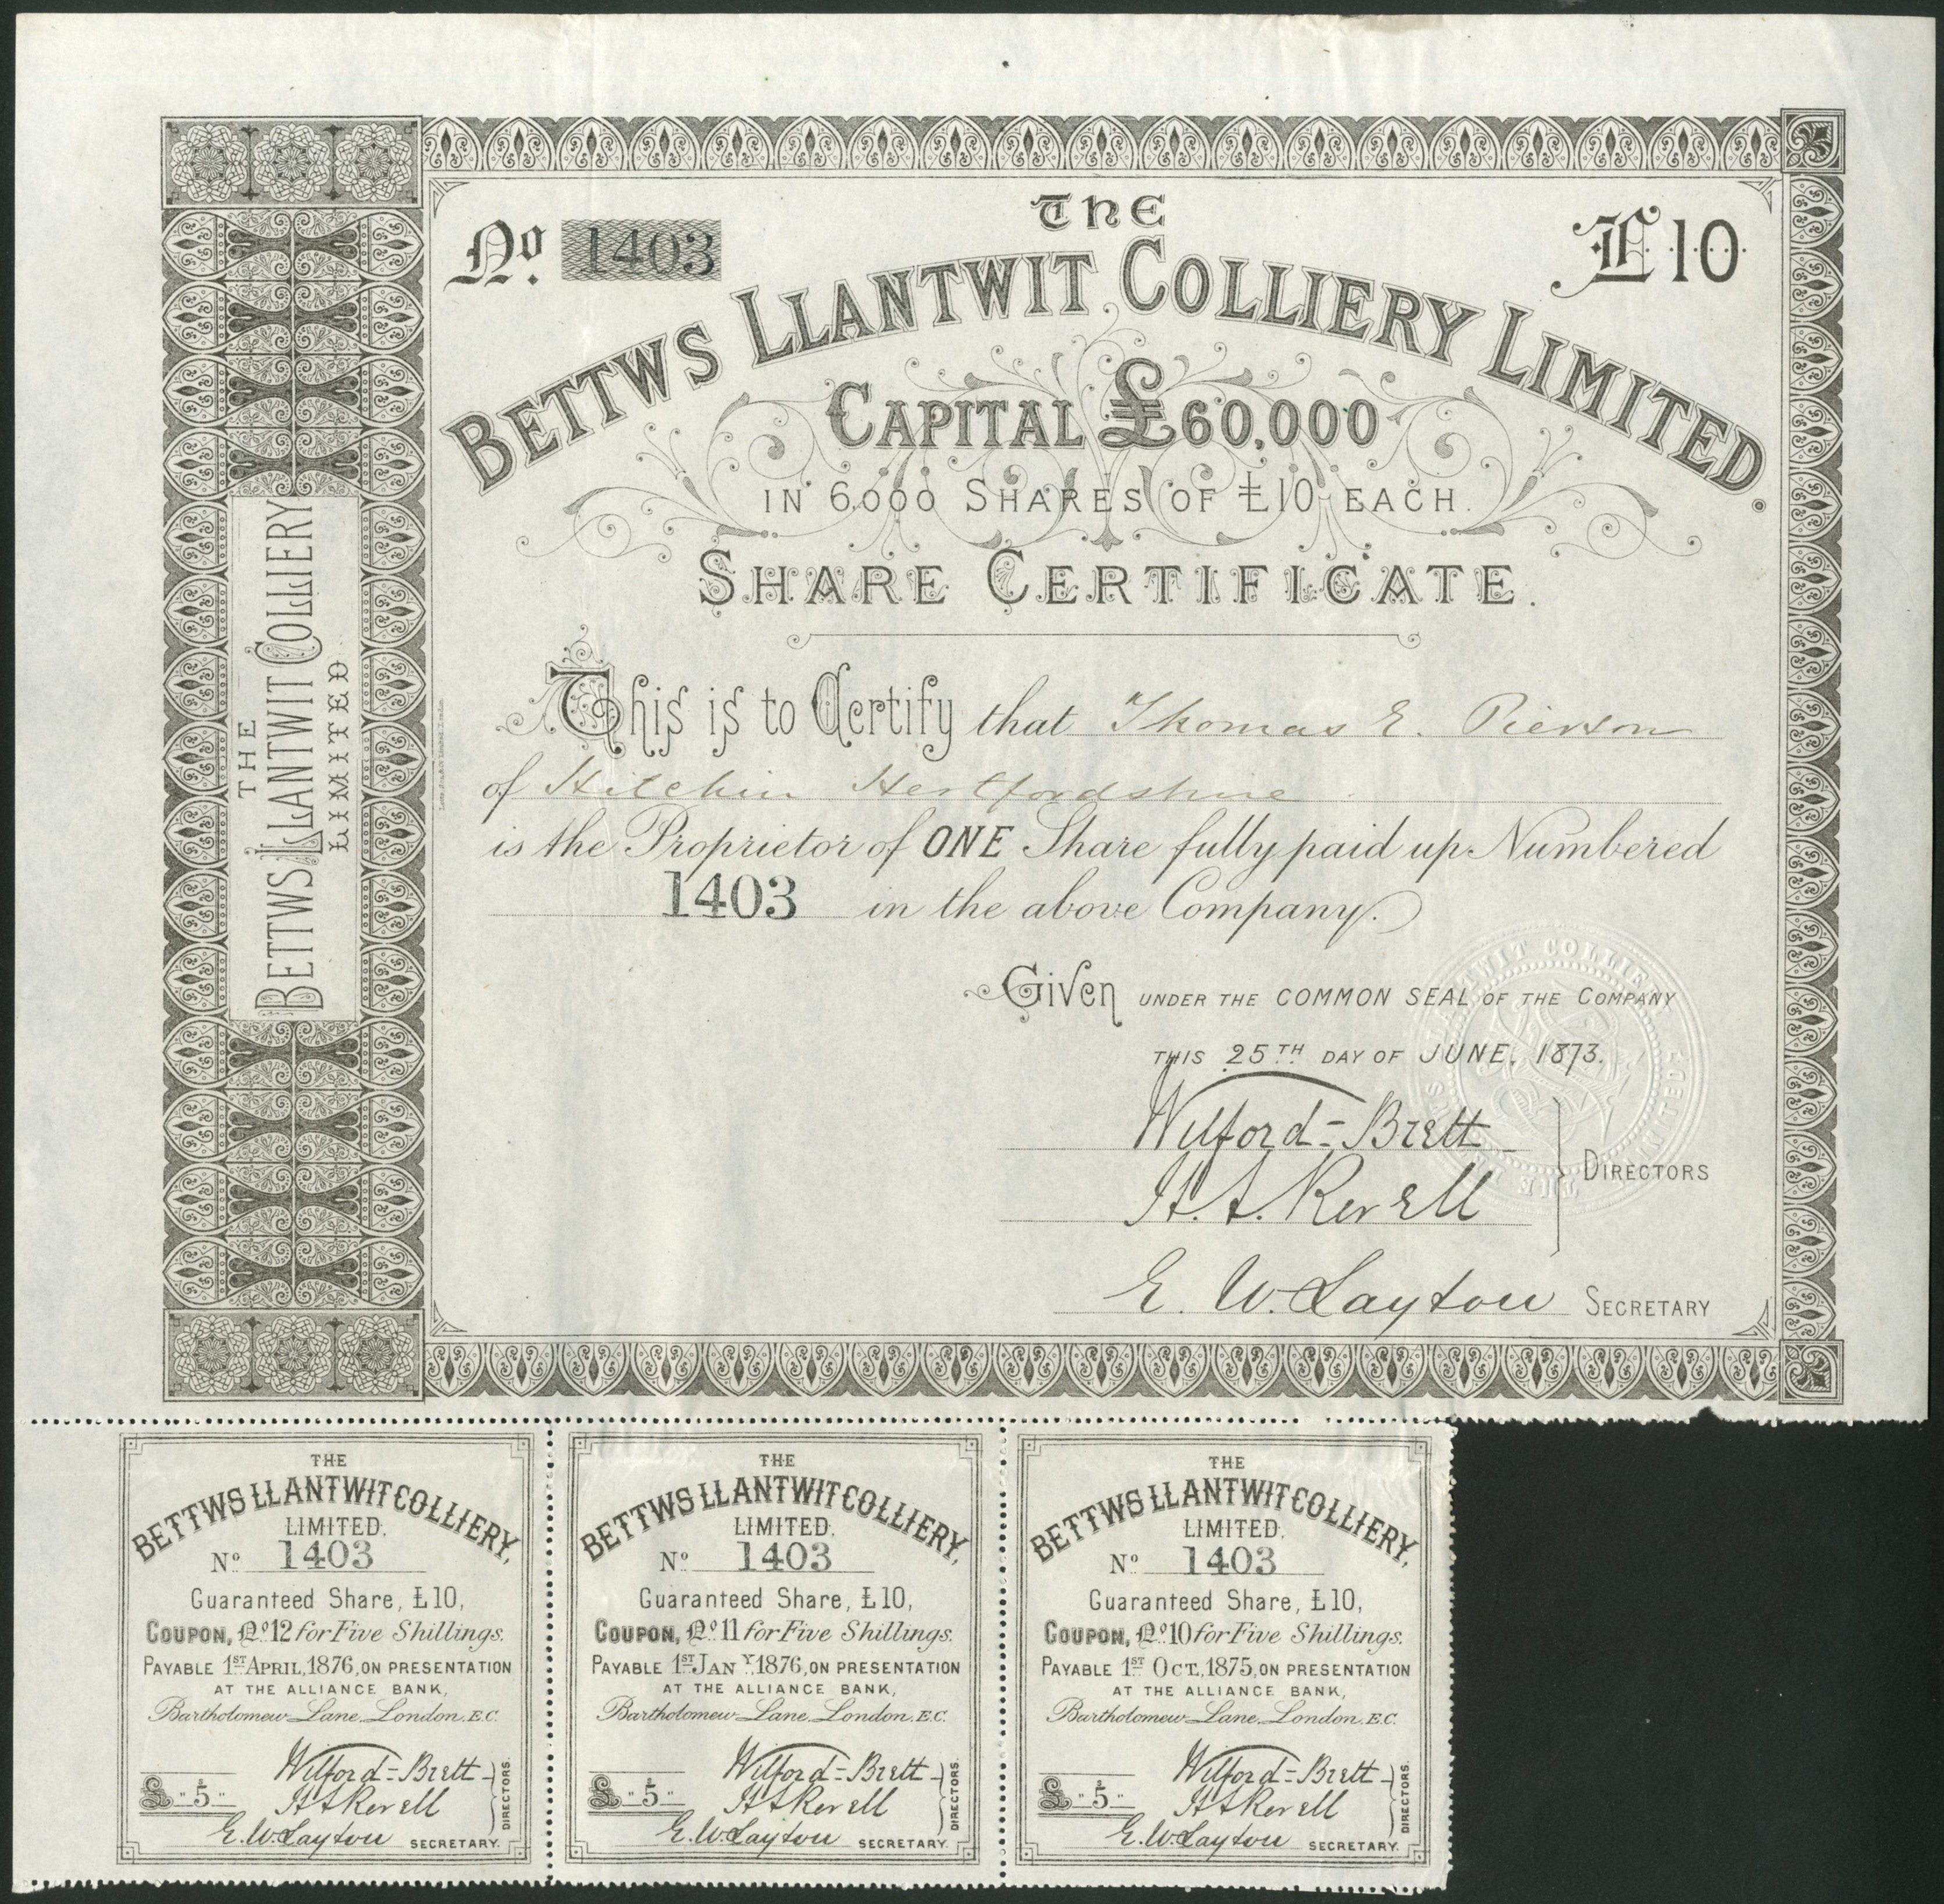 No. 1403
£10
THE
BETTWS LLANTWIT COLLIERY LIMITED.
CAPITAL £60,000
IN 6,000 SHARES OF £10 EACH.
SHARE CERTIFICATE.
This is to Certify that Thomas E. Pierson
of Hitchin Hertfordshire
is the Proprietor of ONE Share fully paid up Numbered
1403 in the above Company.
Given UNDER THE COMMON SEAL OF THE COMPANY
THIS 25TH DAY OF JUNE, 1873.
Wilford=Brett
H.A. Revell
DIRECTORS
E. W. Layton SECRETARY
THE
BETTWS LLANTWIT COLLIERY
LIMITED
THE
BETTWS LLANTWIT COLLIERY,
LIMITED.
No. 1403
Guaranteed Share, £10,
COUPON, No. 12 for Five Shillings.
PAYABLE 1ST APRIL, 1876, ON PRESENTATION
AT THE ALLIANCE BANK,
Bartholomew Lane, London, E.C.
Wilford=Brett
£ " 5 "
H A Revell
DIRECTORS.
E. W. Layton SECRETARY.
THE
BETTWS LLANTWIT COLLIERY,
LIMITED.
No. 1403
Guaranteed Share, £10,
COUPON, No. 11 for Five Shillings.
PAYABLE 1ST JANY. 1876, ON PRESENTATION
AT THE ALLIANCE BANK,
Bartholomew Lane, London, E.C.
Wilford=Brett
£ " 5 "
H A Revell
DIRECTORS.
E. W. Layton SECRETARY.
THE
BETTWS LLANTWIT COLLIERY,
LIMITED.
No. 1403
Guaranteed Share, £10,
COUPON, No. 10 for Five Shillings.
PAYABLE 1ST OCT., 1875, ON PRESENTATION
AT THE ALLIANCE BANK,
Bartholomew Lane, London, E.C.
Wilford=Brett
£ " 5 "
H A Revell
DIRECTORS.
E. W. Layton SECRETARY.